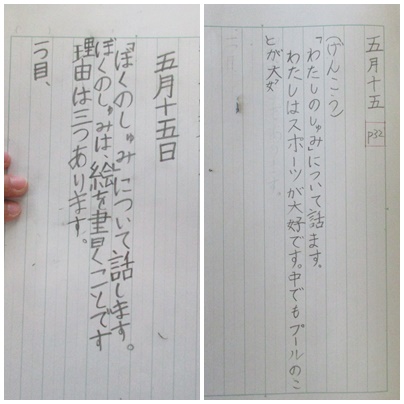 五月十五日
「ぼくのしゅみ」について話します。
ぼくのしゅみは、絵を書くことです
理由は三つあります。
一つ目、
五月十五
p32
(げんこう)
「わたしのしゅみ」について話ます。
わたしはスポーツが大好です。中でもプールのこ
とが大好